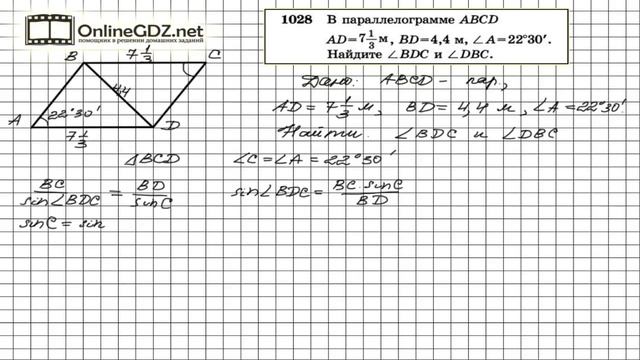 OnlineGDZ.net
помощник в решении домашних заданий
1028 В параллелограмме ABCD
AD=7 1/3 м, BD=4,4 м, ∠A=22°30′.
Найдите ∠BDC и ∠DBC.
B 7 1/3 C
4,4
A 22°30′ D
7 1/3
Дано: ABCD - пар,
AD = 7 1/3 м, BD = 4,4 м, ∠A = 22°30′
Найти: ∠BDC и ∠DBC
△BCD ∠C = ∠A = 22°30′
BC/sin∠BDC = BD/sinC sin∠BDC = BC·sinC/BD
sinC = sin